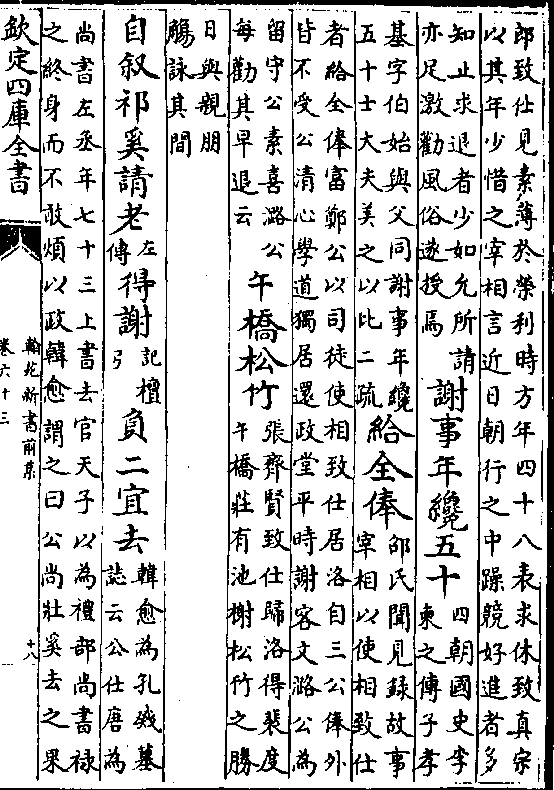 郎致仕見素薄於榮利時方年四十八表求休致真宗
以其年少惜之宰相言近日朝行之中躁競好進者多
知止求退者少如允所請
亦足激勸風俗遂授焉
謝事年纔五十
四朝國史李
柬之傳子孝
基字伯始與父同謝事年纔
五十士大夫美之以比二疏
給全俸
邵氏聞見錄故事
宰相以使相致仕
者給全俸富鄭公以司徒使相致仕居洛自三公俸外
皆不受公清心學道獨居還政堂平時謝客文潞公為
留守公素喜潞公
每勸其早退云
午橋松竹
張齊賢致仕歸洛得裴度
午橋莊有池榭松竹之勝
日與親朋
觴詠其間
自叙祁奚請老
左
傳
得謝
記檀
弓
負二宜去
韓愈為孔戣墓
誌云公仕唐為
尚書左丞年七十三上書去官天子以為禮部尚書祿
之終身而不敢煩以政韓愈謂之曰公尚壯奚去之果
欽定四庫全書
翰苑新書前集
卷六十三
十八